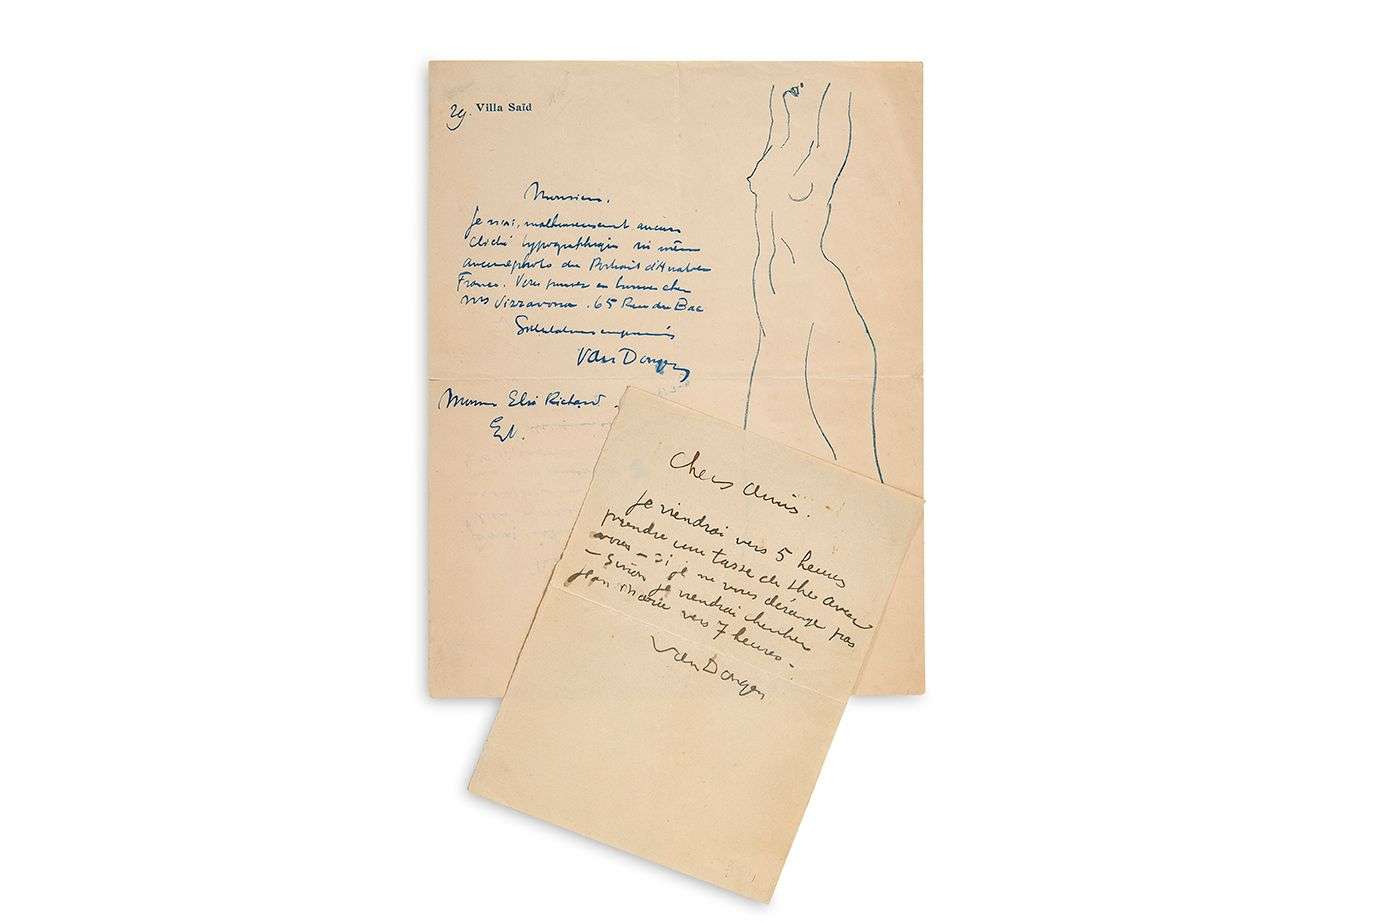 29. Villa Saïd
Monsieur.
Je n'ai, malheureusement aucun
cliché typographique ni même
aucune photo du Portrait d'Anatole
France. Vous pouvez en trouver chez
Vizzavona. 65 Rue du Bac
Salutations empressées
Van Dongen
Monsieur Elie Richard
Chers amis.
Je viendrai vers 5 heures
prendre une tasse de thé avec
vous - si je ne vous dérange pas
- Sinon je viendrai chercher
Jean Marie vers 7 heures -
Van Dongen